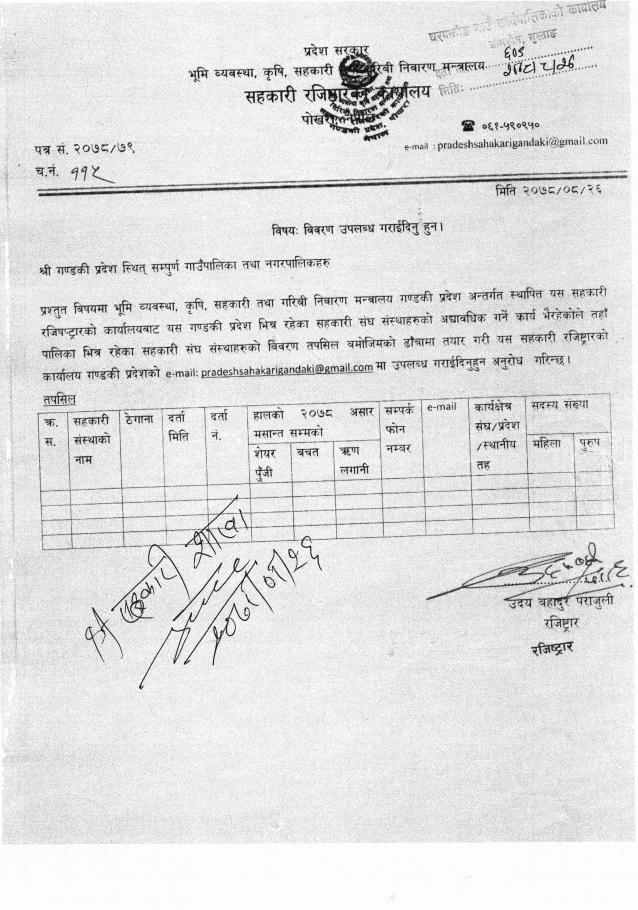 घरपझोङ गाउँ कार्यपालिकाको कार्यालय
प्रदेश सरकार
भूमि व्यवस्था, कृषि, सहकारी तथा गरिबी निवारण मन्त्रालय
सहकारी रजिष्ट्रारको कार्यालय
मिति:
पोखरा
☎ ०६१-५९०९५०
e-mail : pradeshsahakarigandaki@gmail.com
पत्र सं. २०७८/७९
च.नं. ११५
मिति २०७८/०८/२६
विषयः विवरण उपलब्ध गराईदिनु हुन।
श्री गण्डकी प्रदेश स्थित् सम्पुर्ण गाउँपालिका तथा नगरपालिकहरु
प्रश्तुत विषयमा भूमि व्यवस्था, कृषि, सहकारी तथा गरिबी निवारण मन्त्रालय गण्डकी प्रदेश अन्तर्गत स्थापित यस सहकारी
रजिष्ट्रारको कार्यालयबाट यस गण्डकी प्रदेश भित्र रहेका सहकारी संघ संस्थाहरुको अद्यावधिक गर्ने कार्य भैरहेकोले तहाँ
पालिका भित्र रहेका सहकारी संघ संस्थाहरुको विवरण तपसिल वमोजिमको ढाँचामा तयार गरी यस सहकारी रजिष्ट्रारको
कार्यालय गण्डकी प्रदेशको e-mail: pradeshsahakarigandaki@gmail.com मा उपलब्ध गराईदिनुहुन अनुरोध गरिन्छ।
तपसिल
क्र. स. सहकारी संस्थाको नाम ठेगाना दर्ता मिति दर्ता नं. हालको २०७८ असार मसान्त सम्मको सम्पर्क फोन नम्बर e-mail कार्यक्षेत्र संघ/प्रदेश /स्थानीय तह सदस्य संख्या
शेयर पुँजी बचत ऋण लगानी महिला पुरुष
श्री सहकारी शाखा
उदय बहादुर पराजुली
रजिष्ट्रार
रजिष्ट्रार